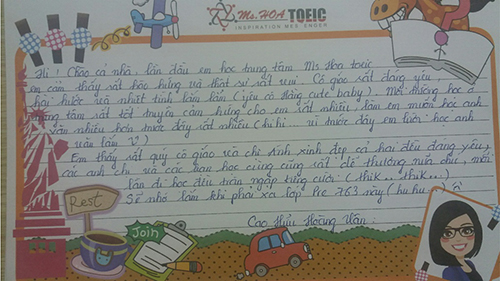 Ms. HOA TOEIC
INSPIRATION MRS. ENDER
Hi! Chào cả nhà, lần đầu em học trung tâm Ms Hoa toeic
em cảm thấy rất hào hứng và thật sự rất vui. Cô giáo rất đáng yêu,
hài hước và nhiệt tình lắm lắm (yêu cô Hằng cute baby). Môi trường học ở
trung tâm rất tốt truyền cảm hứng cho em rất nhiều, làm em muốn học anh
văn nhiều hơn trước đây rất nhiều (hi hi... vì trước đây em lười học anh
văn lắm V)
Em thấy rất quý cô giáo và chị xinh đẹp cả hai đều đáng yêu,
các anh chị và các bạn học cùng cũng rất dễ thương nữa chứ, mỗi
lần đi học đều tràn ngập tiếng cười: (thik... thik...)
Sẽ nhớ lắm khi phải xa lớp Pre 763 này (hu hu
Cao Hữu Hoàng Vân
Rest
Join